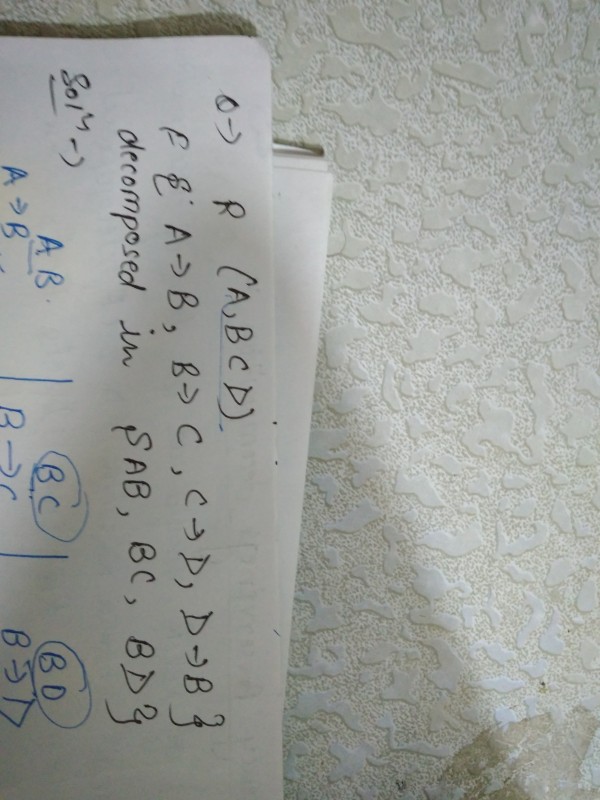 Q → R (A,BCD)
F {: A → B, B → C, C → D, D → B}
decomposed in {AB, BC, BD}
Solⁿ →
AB. BC BD
A → B B → C B → D